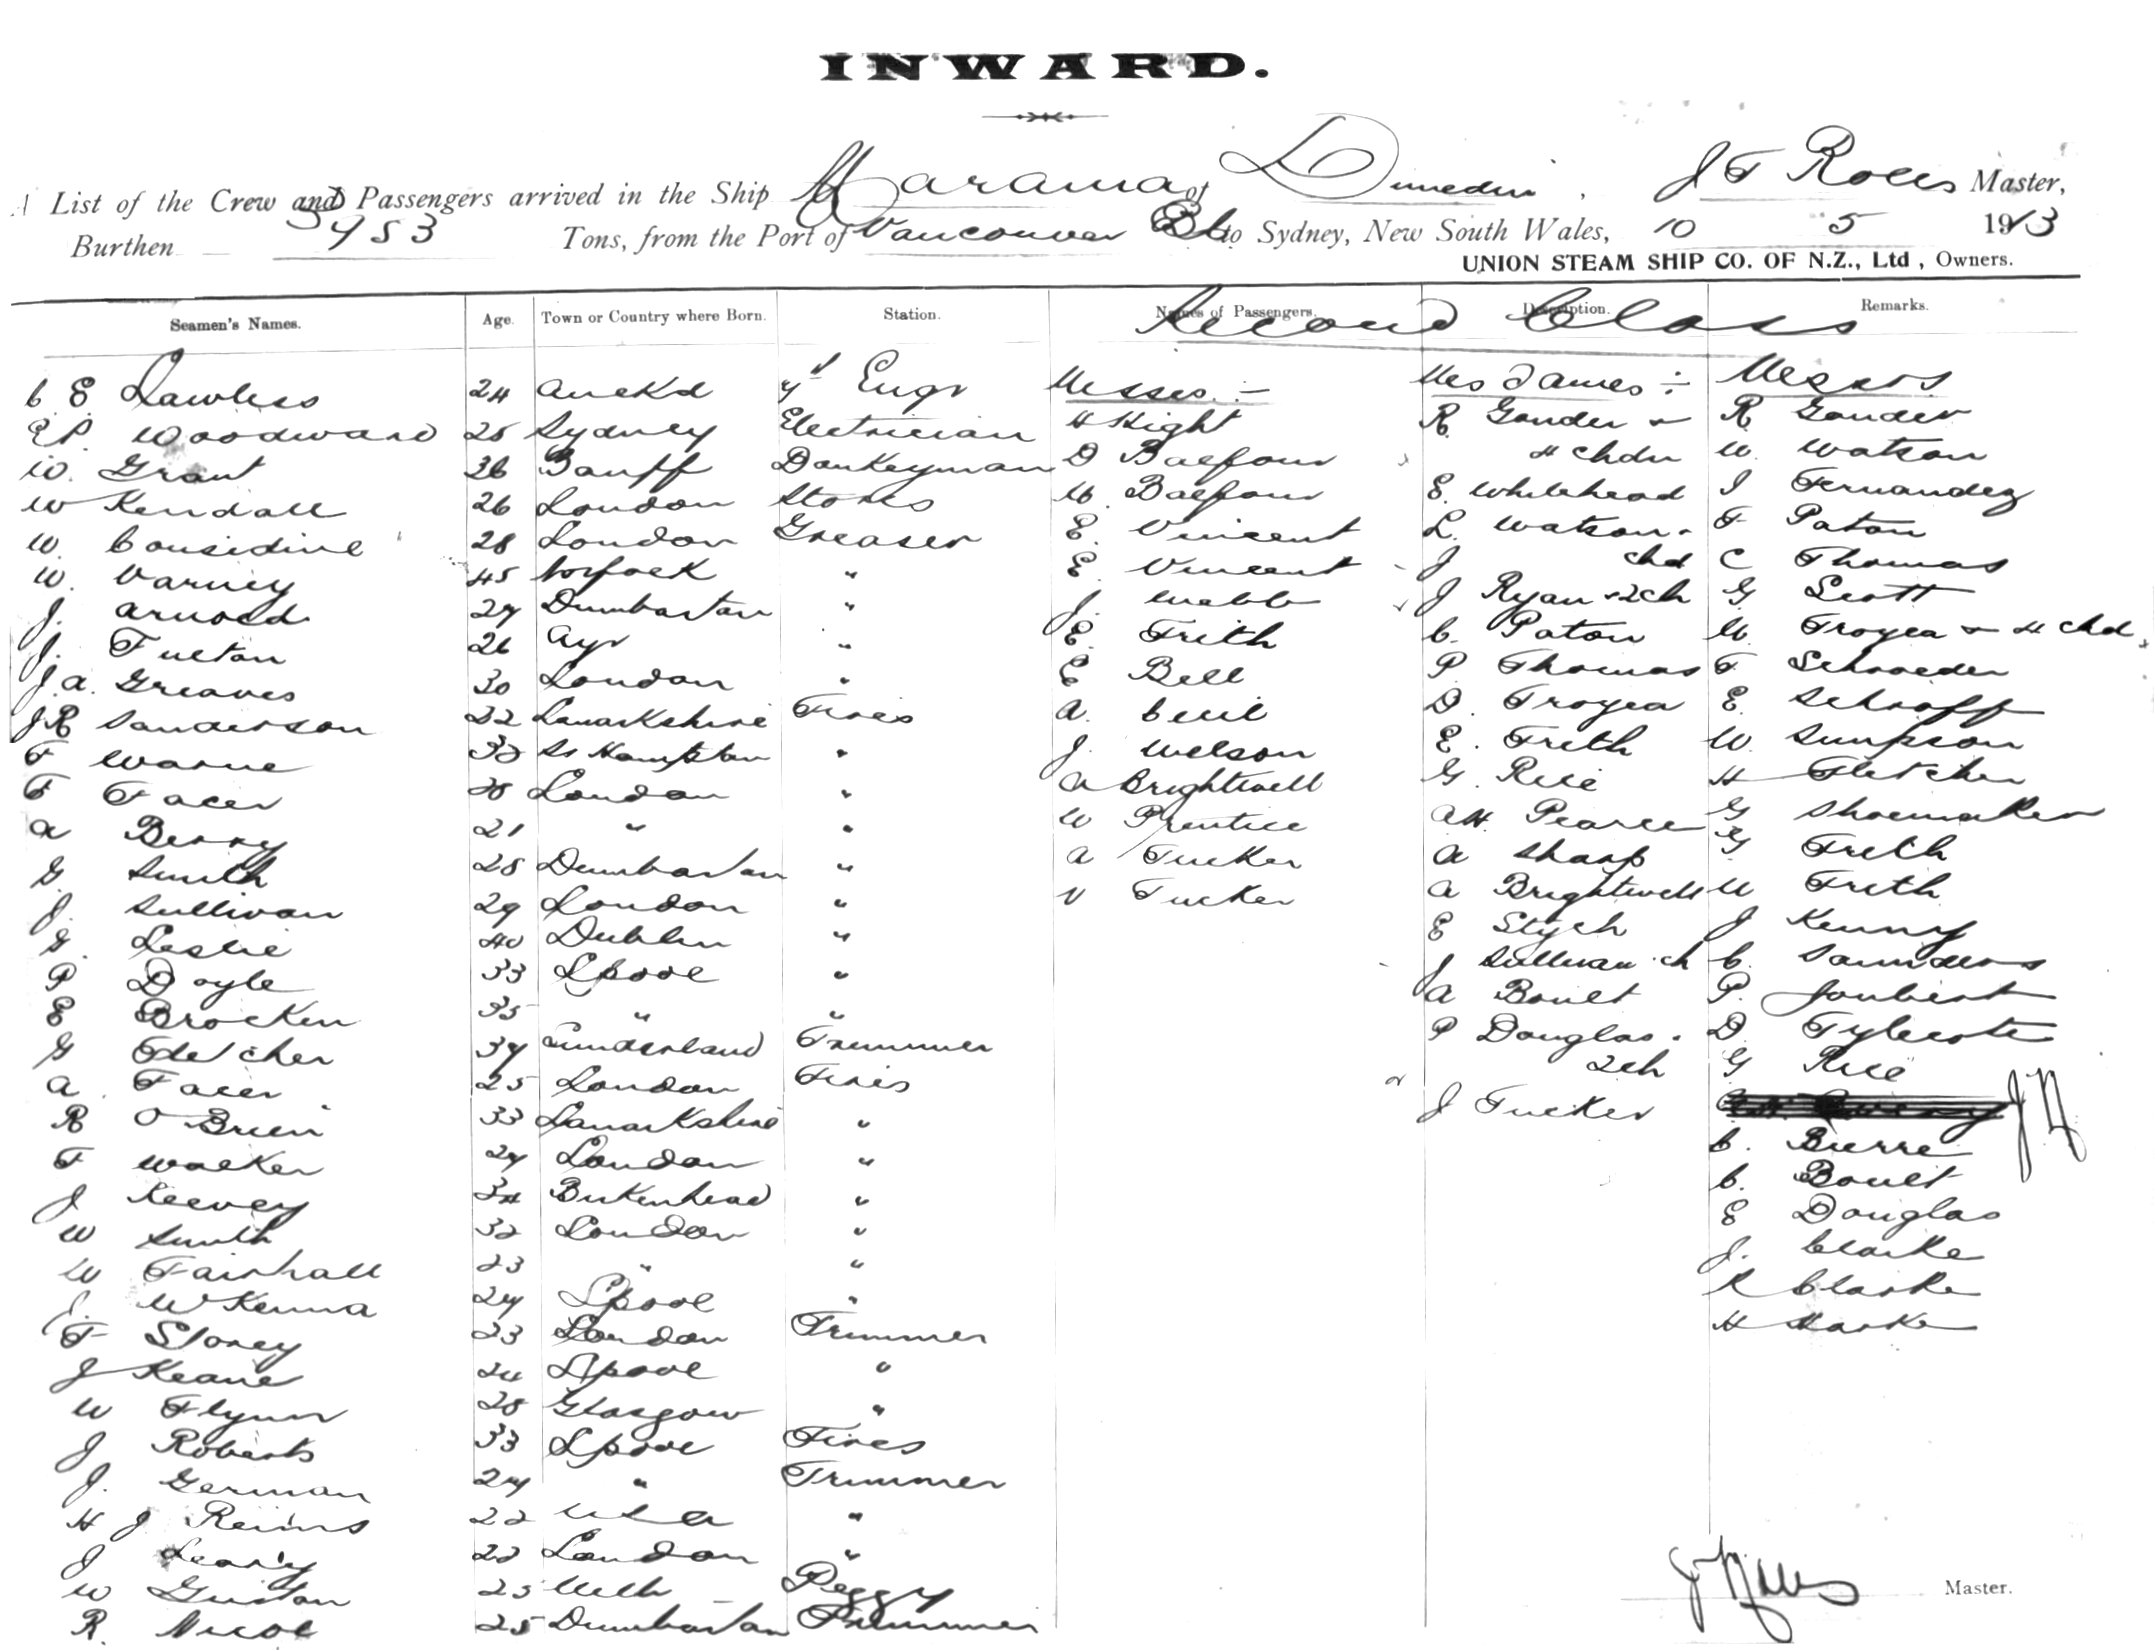 INWARD.
A List of the Crew and Passengers arrived in the Ship Marama of Dunedin, J F Rolls Master,
Burthen 3953 Tons, from the Port of Vancouver to Sydney, New South Wales, 10 5 1913
UNION STEAM SHIP CO. OF N.Z., Ltd, Owners.
Seamen's Names. Age. Town or Country where Born. Station. Names of Passengers. Description. Remarks.
Second Class
C E Lawless 24 Auckd Engr Misses :- Mesdames :- Messrs
Woodward 25 Sydney Electrician H Hight R. Gander & R. Gander
W. Grant 36 Banff Donkeyman D Balfour 4 chdn W. Watson
W Kendall 26 London Stores M. Balfour E. Whitehead J Fernandez
W. Considine 28 London Greaser E. Vincent L. Watson F Paton
W. Varney 45 Norfolk " E. Vincent J chd C Thomas
J. Arnold 27 Dumbarton " J. Webb J Ryan 2ch G Scott
J. Fulton 26 Ayr " E. Frith C. Paton W. Troyea & 4 chd
J.A. Greaves 30 London " E Bell P Thomas F Schroeder
J R Sanderson 32 Lanarkshire Fires A. Cecil D. Troyea E. Schroff
F Warne 38 So Hampton " J. Wilson E. Frith W. Simpson
F Facer 28 London " A Brightwell G. Rice H Fletcher
A Berry 21 " " W Prentice AH. Pearce G Shoemaker
G Smith 28 Dumbarton " A Tucker A Sharp G Frith
J. Sullivan 29 London " V Tucker A Brightwell W Frith
G. Leslie 40 Dublin " E Stych J Kenny
P Doyle 33 Lpool " J Sullivan ch C. Saunders
E Brocken 35 " " A Boult P. Joubert
G Fletcher 39 Sunderland Trimmer P Douglas. D. Tylecote
A. Facer 25 London Fires 2ch G Rice
R O'Brien 33 Lanarkshire " J Tucker
F Walker 27 London " C. Burre
J Keevey 34 Birkenhead " C. Boult
W Smith 32 London " E Douglas
W Fairhall 23 " " J. Clarke
J. McKenna 24 Lpool " R Clarke
F Storey 23 London Trimmer H
J Keane 24 Lpool "
W Flynn 28 Glasgow "
J Roberts 33 Lpool Fires
J. German 24 " Trimmer
H J Reims 22 USA "
J Leary 22 London "
W Guiston 25 Melb Peggy
R. Nicol 25 Dumbarton Trimmer
Master.